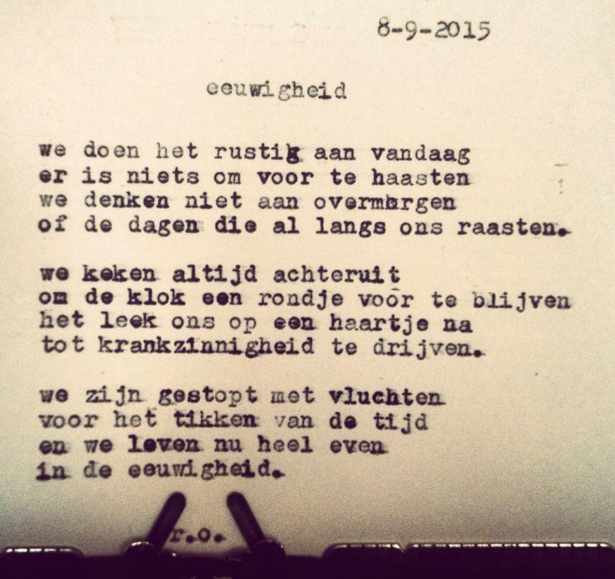 8-9-2015
eeuwigheid
we doen het rustig aan vandaag
er is niets om voor te haasten
we denken niet aan overmorgen
of de dagen die al langs ons raasten.
we keken altijd achteruit
om de klok een rondje voor te blijven
het leek ons op een haartje na
tot krankzinnigheid te drijven.
we zijn gestopt met vluchten
voor het tikken van de tijd
en we leven nu heel even
in de eeuwigheid.
r.o.